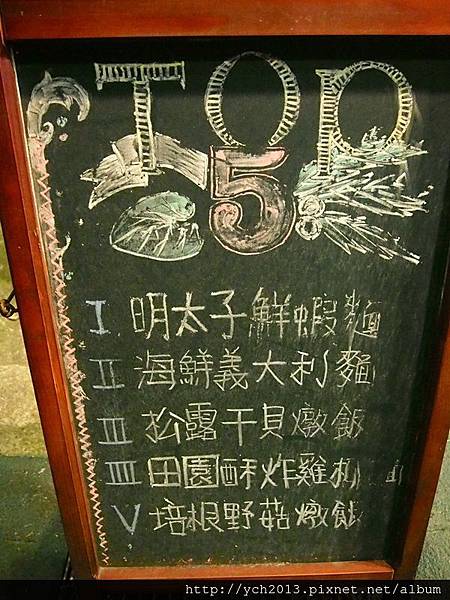 TOP
5
I 明太子鮮蝦麵
II 海鮮義大利麵
III 松露干貝燉飯
IIII 田園酥炸雞
V 培根野菇燉飯
http://ych2013.pixnet.net/album